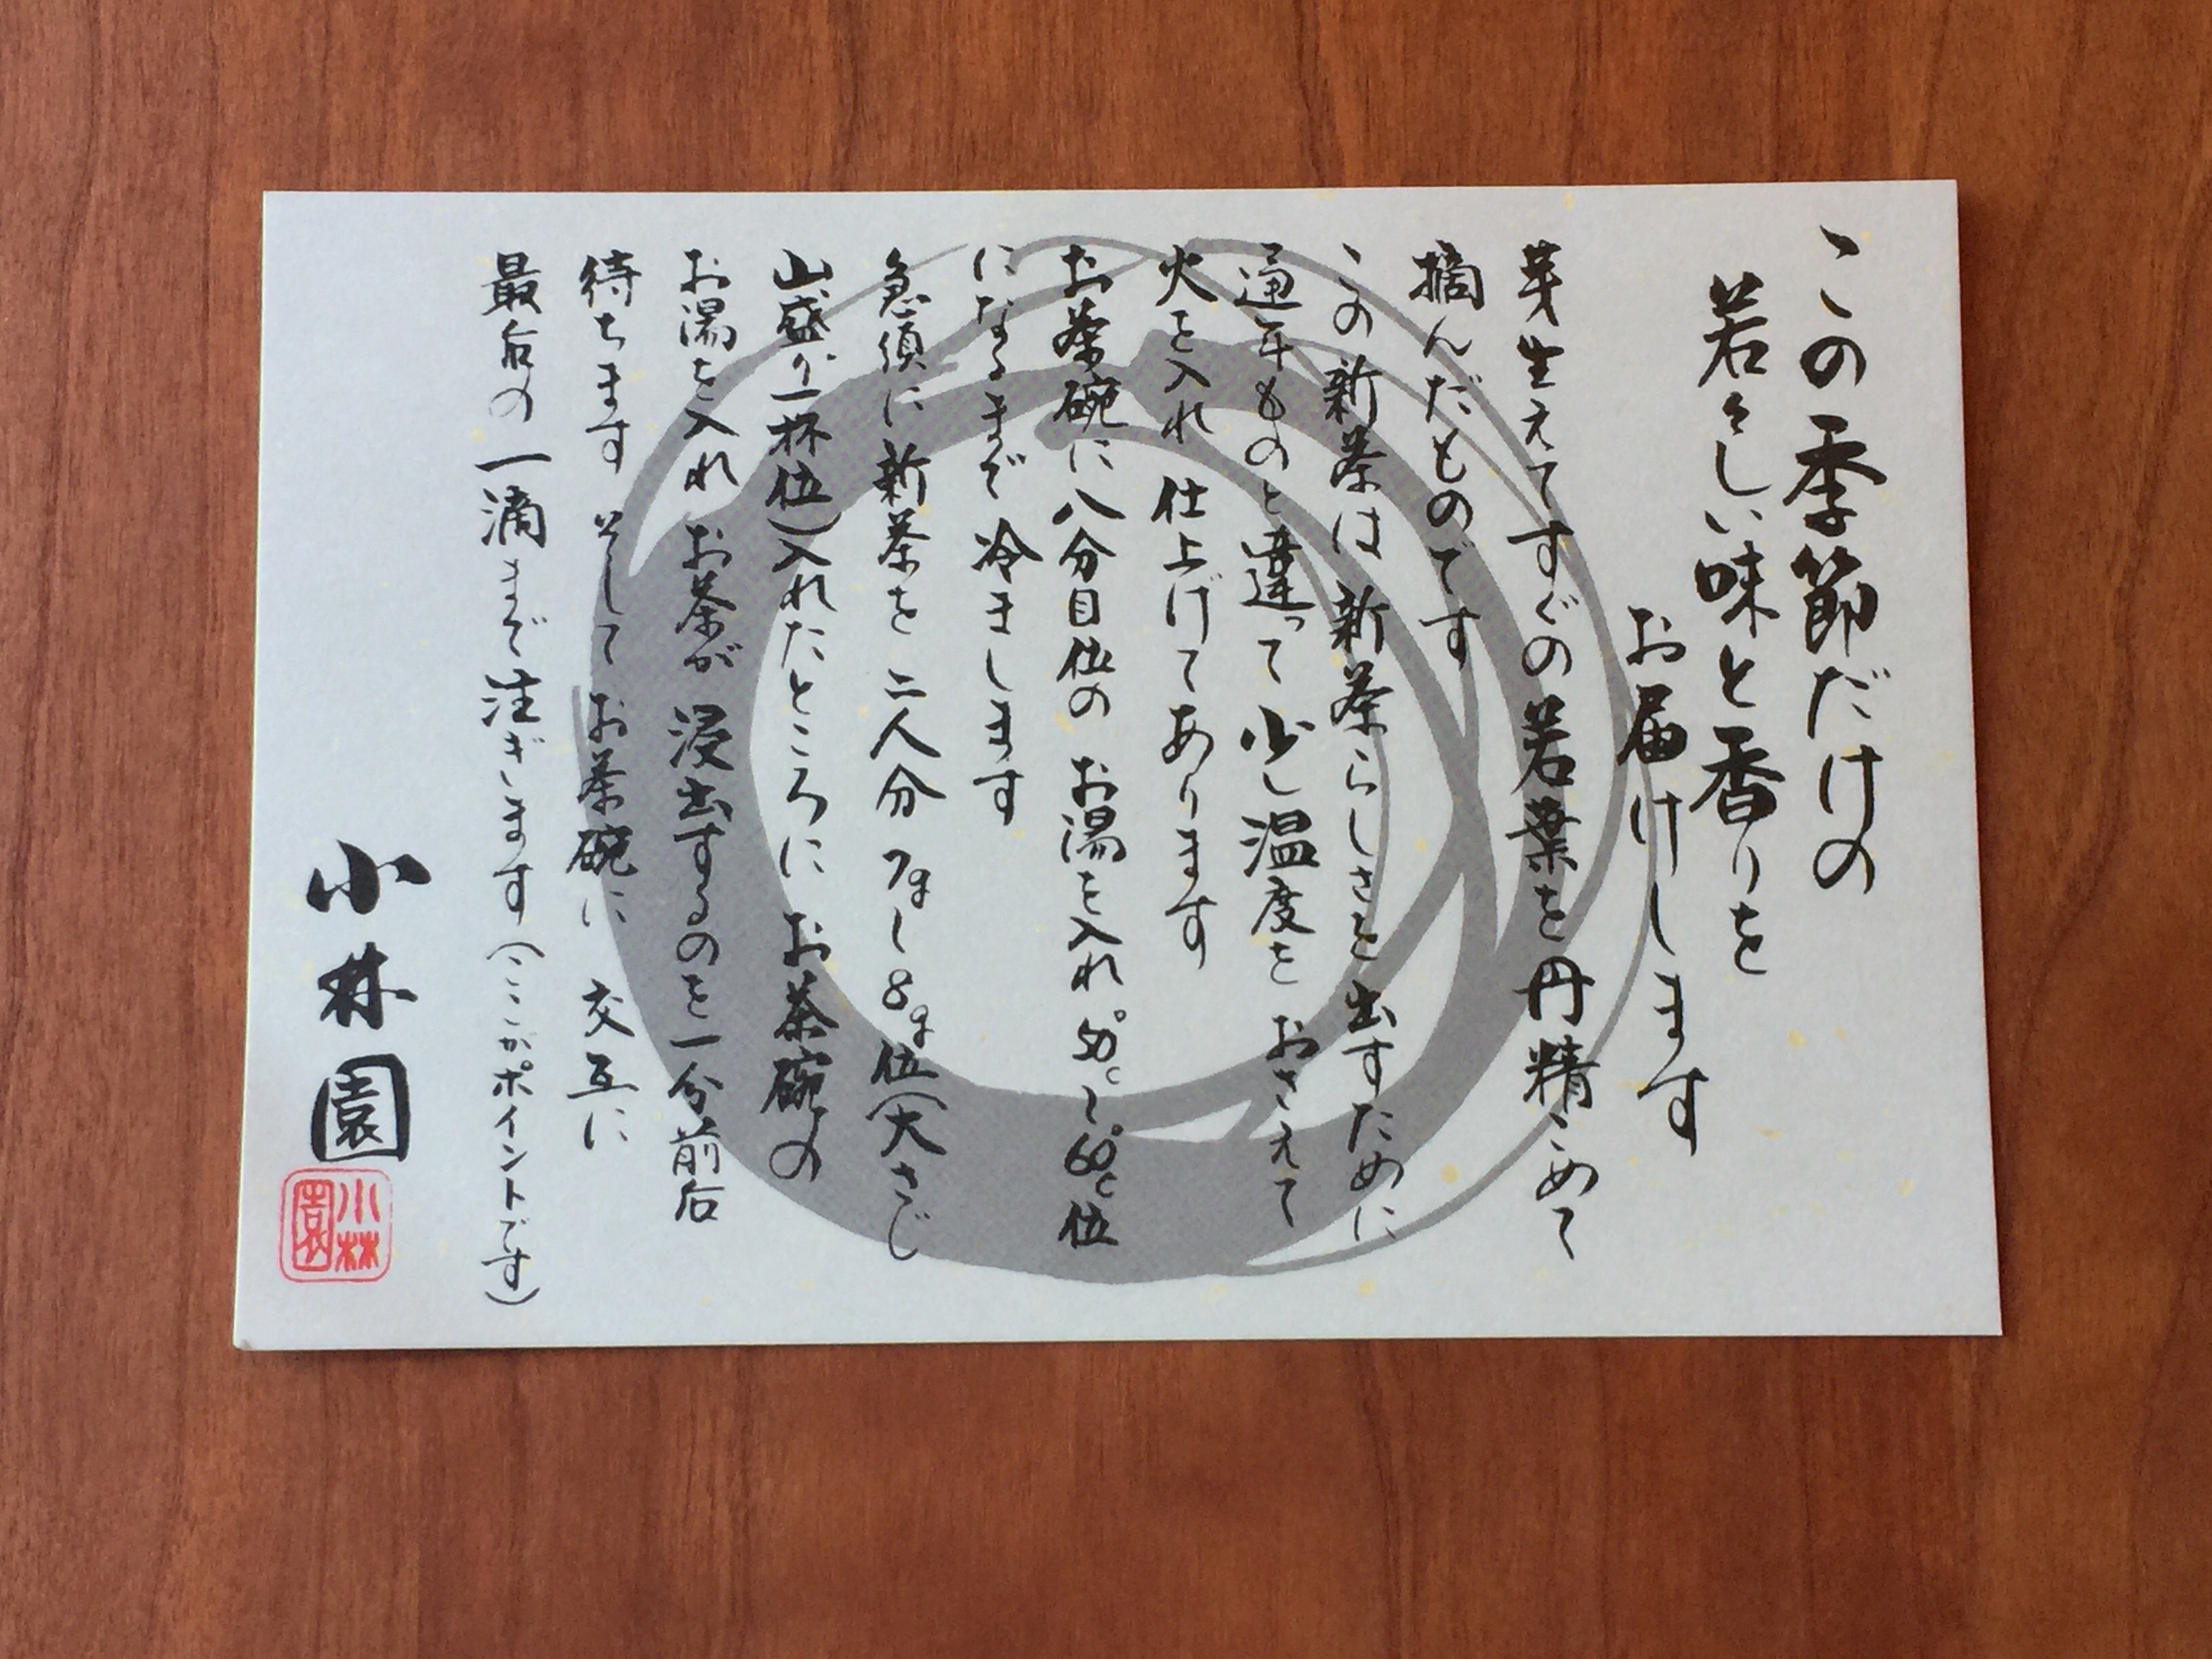 この季節だけの
若々しい味と香りを
お届けします
芽生えてすぐの若葉を丹精こめて
摘んだものです
この新茶は新茶らしさを出すために
通年ものと違って少し温度をおさえて
火を入れ仕上げてあります
お茶碗に八分目位のお湯を入れ50℃〜60℃位
になるまで冷まします
急須に新茶を二人分7g〜8g位(大さじ
山盛り一杯位)入れたところにお茶碗の
お湯を入れお茶が浸出するのを一分前后
待ちますそしてお茶碗に交互に
最后の一滴まで注ぎます(ここがポイントです)
小林園
小林園